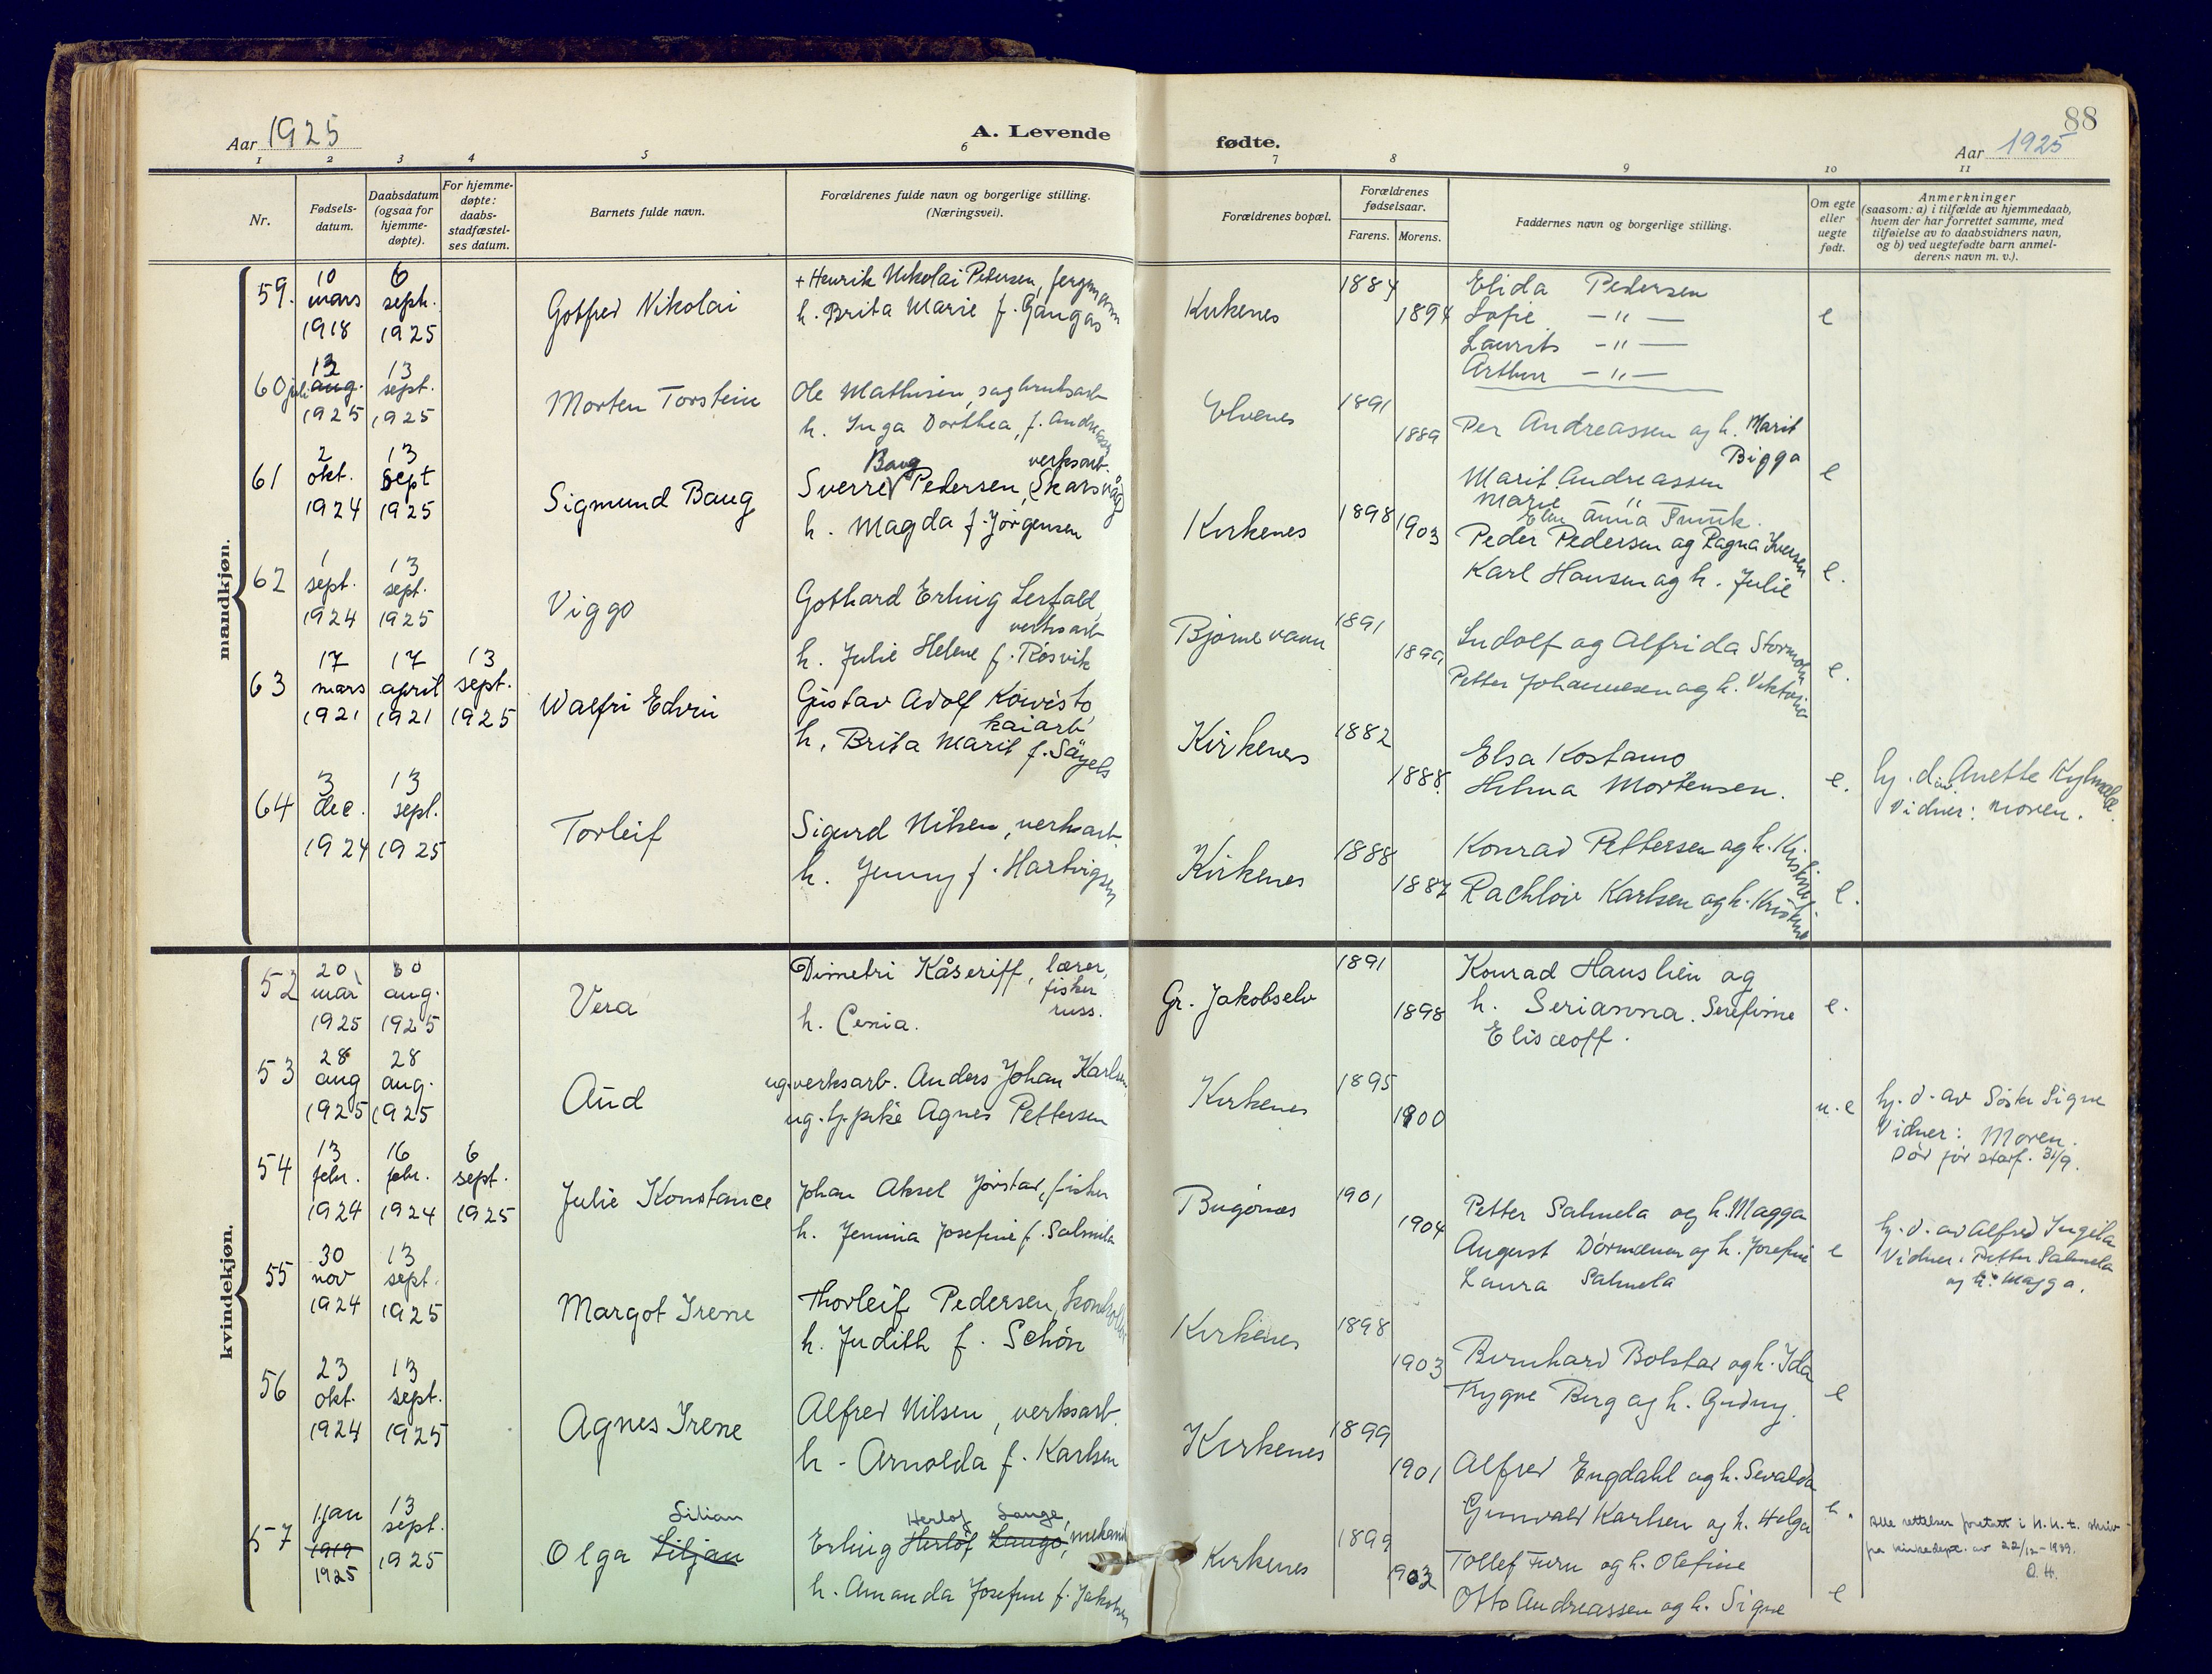 Aar 1925
A. Levende
fødte.
88
Aar 1925
1 2 3 4 5 6 7 8 9 10 11
Nr.
Fødsels-
datum.
Daabsdatum
(ogsaa for
hjemme-
døpte).
For hjemme-
døpte:
daabs-
stadfæstel-
ses datum.
Barnets fulde navn.
Forældrenes fulde navn og borgerlige stilling.
(Næringsvei).
Forældrenes bopæl.
Forældrenes
fødselsaar.
Farens. Morens.
Faddernes navn og borgerlige stilling.
Om egte
eller
uegte
født.
Anmerkninger
(saasom: a) i tilfælde av hjemmedaab,
hvem der har forrettet samme, med
tilføielse av to daabsvidners navn,
og b) ved uegtefødte barn anmel-
derens navn m. v.).
mandkjøn.
59. 10 mars 1918 6 sept. 1925
Gotfred Nikolai
+ Henrik Nikolai Pedersen,
h. Brita Marie f. Gangås
Kirkenes
1884
1894
Elida Pedersen
Sofie - " -
Laurits - " -
Arthur - " -
e
60 13 juli aug. 1925 13 sept. 1925
Morten Torstein
Ole Mathisen, sagbruksarb
h. Inga Dorthea, f. Andreassen
Elvenes
1891
1889
Per Andreassen og h. Marit
Bigga
Marit Andreassen
Marie "
Elen Anna
e
61 2 okt. 1924 13 sept 1925
Sigmund Baug
Baug verksarb.
Sverre Pedersen, Skarsvåg
h. Magda f. Jørgensen
Kirkenes
1898
1903
Peder Pedersen og Ragna Iversen
Karl Hansen og h. Julie
e.
62 1 sept. 1924 13 sept. 1925
Viggo
Gothard Erling Lerfald,
verksarb
h. Julie Helene f. Røsvik
Bjørnevann
1891
1899
Ludolf og Alfrida Stormo
Petter Johannesen og h. Viktoria
e.
63 17 mars 1921 17 april 1921 13 sept. 1925
Walfri Edvin
Gustav Adolf Koivisto,
kaiarb
h. Brita Marit f.
Kirkenes
1882
1888.
Elsa Kostamo
Helma Mortensen.
e.
hj. d. av. Anette
Vidner: moren.
64 3 dec. 1924 13 sept. 1925
Torleif
Sigurd Nilsen, verksarb.
h. Jenny f. Hartvigsen
Kirkenes
1888
1887
Konrad Pettersen og h.
Karlsen og h. Kristine
e.
kvindekjøn.
52 20 mai 1925 30 aug. 1925
Vera
Dimetri Kåseriff, lærer,
fisker
russ.
h. Cenia.
Gr. Jakobselv
1891
1898
Konrad Hauslien og
h. Serianna. Serefine
Elisæoff.
e.
53 28 aug 1925 28 aug. 1925
Aud
ug. verksarb. Anders Johan Karlsen,
ug. tj.pike Agnes Pettersen
Kirkenes
1895
1900
u. e
hj. d. av Søster Signe
Vidner: Moren.
Død før stadf. 3/9.
54 13 febr. 1924 16 febr. 1924 6 sept. 1925
Julie Konstance
Johan Aksel Jørstad, fisker
h. Jemina Josefine f. Salmila
Bugønes
1901
1904
Petter Salmela og h. Magga
August og h. Josefine
Laura Salmela
e
hj. d. av Alfred Ingila
Vidner: Petter Salmela
og h. Magga.
55 30 nov 1924 13 sept. 1925
Margot Irene
Thorleif Pedersen,
h. Judith f. Schön
Kirkenes
1898
1903
Bernhard Bolstad og h. Ida
Trygve Berg og h. Gudny.
e
56 23 okt. 1924 13 sept. 1925
Agnes Irene
Alfred Nilsen, verksarb.
h. Arnolda f. Karlsen
Kirkenes
1899
1901
Alfred Engdahl og h. Sevalda
Gunvald Karlsen og h. Helga
57 1 jan 1919 1925 13 sept. 1925
Lilian
Olga Liljan
Herlof Lange,
Erling Herlof Lango, mekanik
h. Amanda Josefine f. Jakobsen
Kirkenes
1899
1903
Tollef Furu og h. Olefine
Otto Andreassen og h. Signe
e
Alle rettelser foretatt i h. h. t. skriv
fra kirkedept. av 22/12-1939.
O. H.